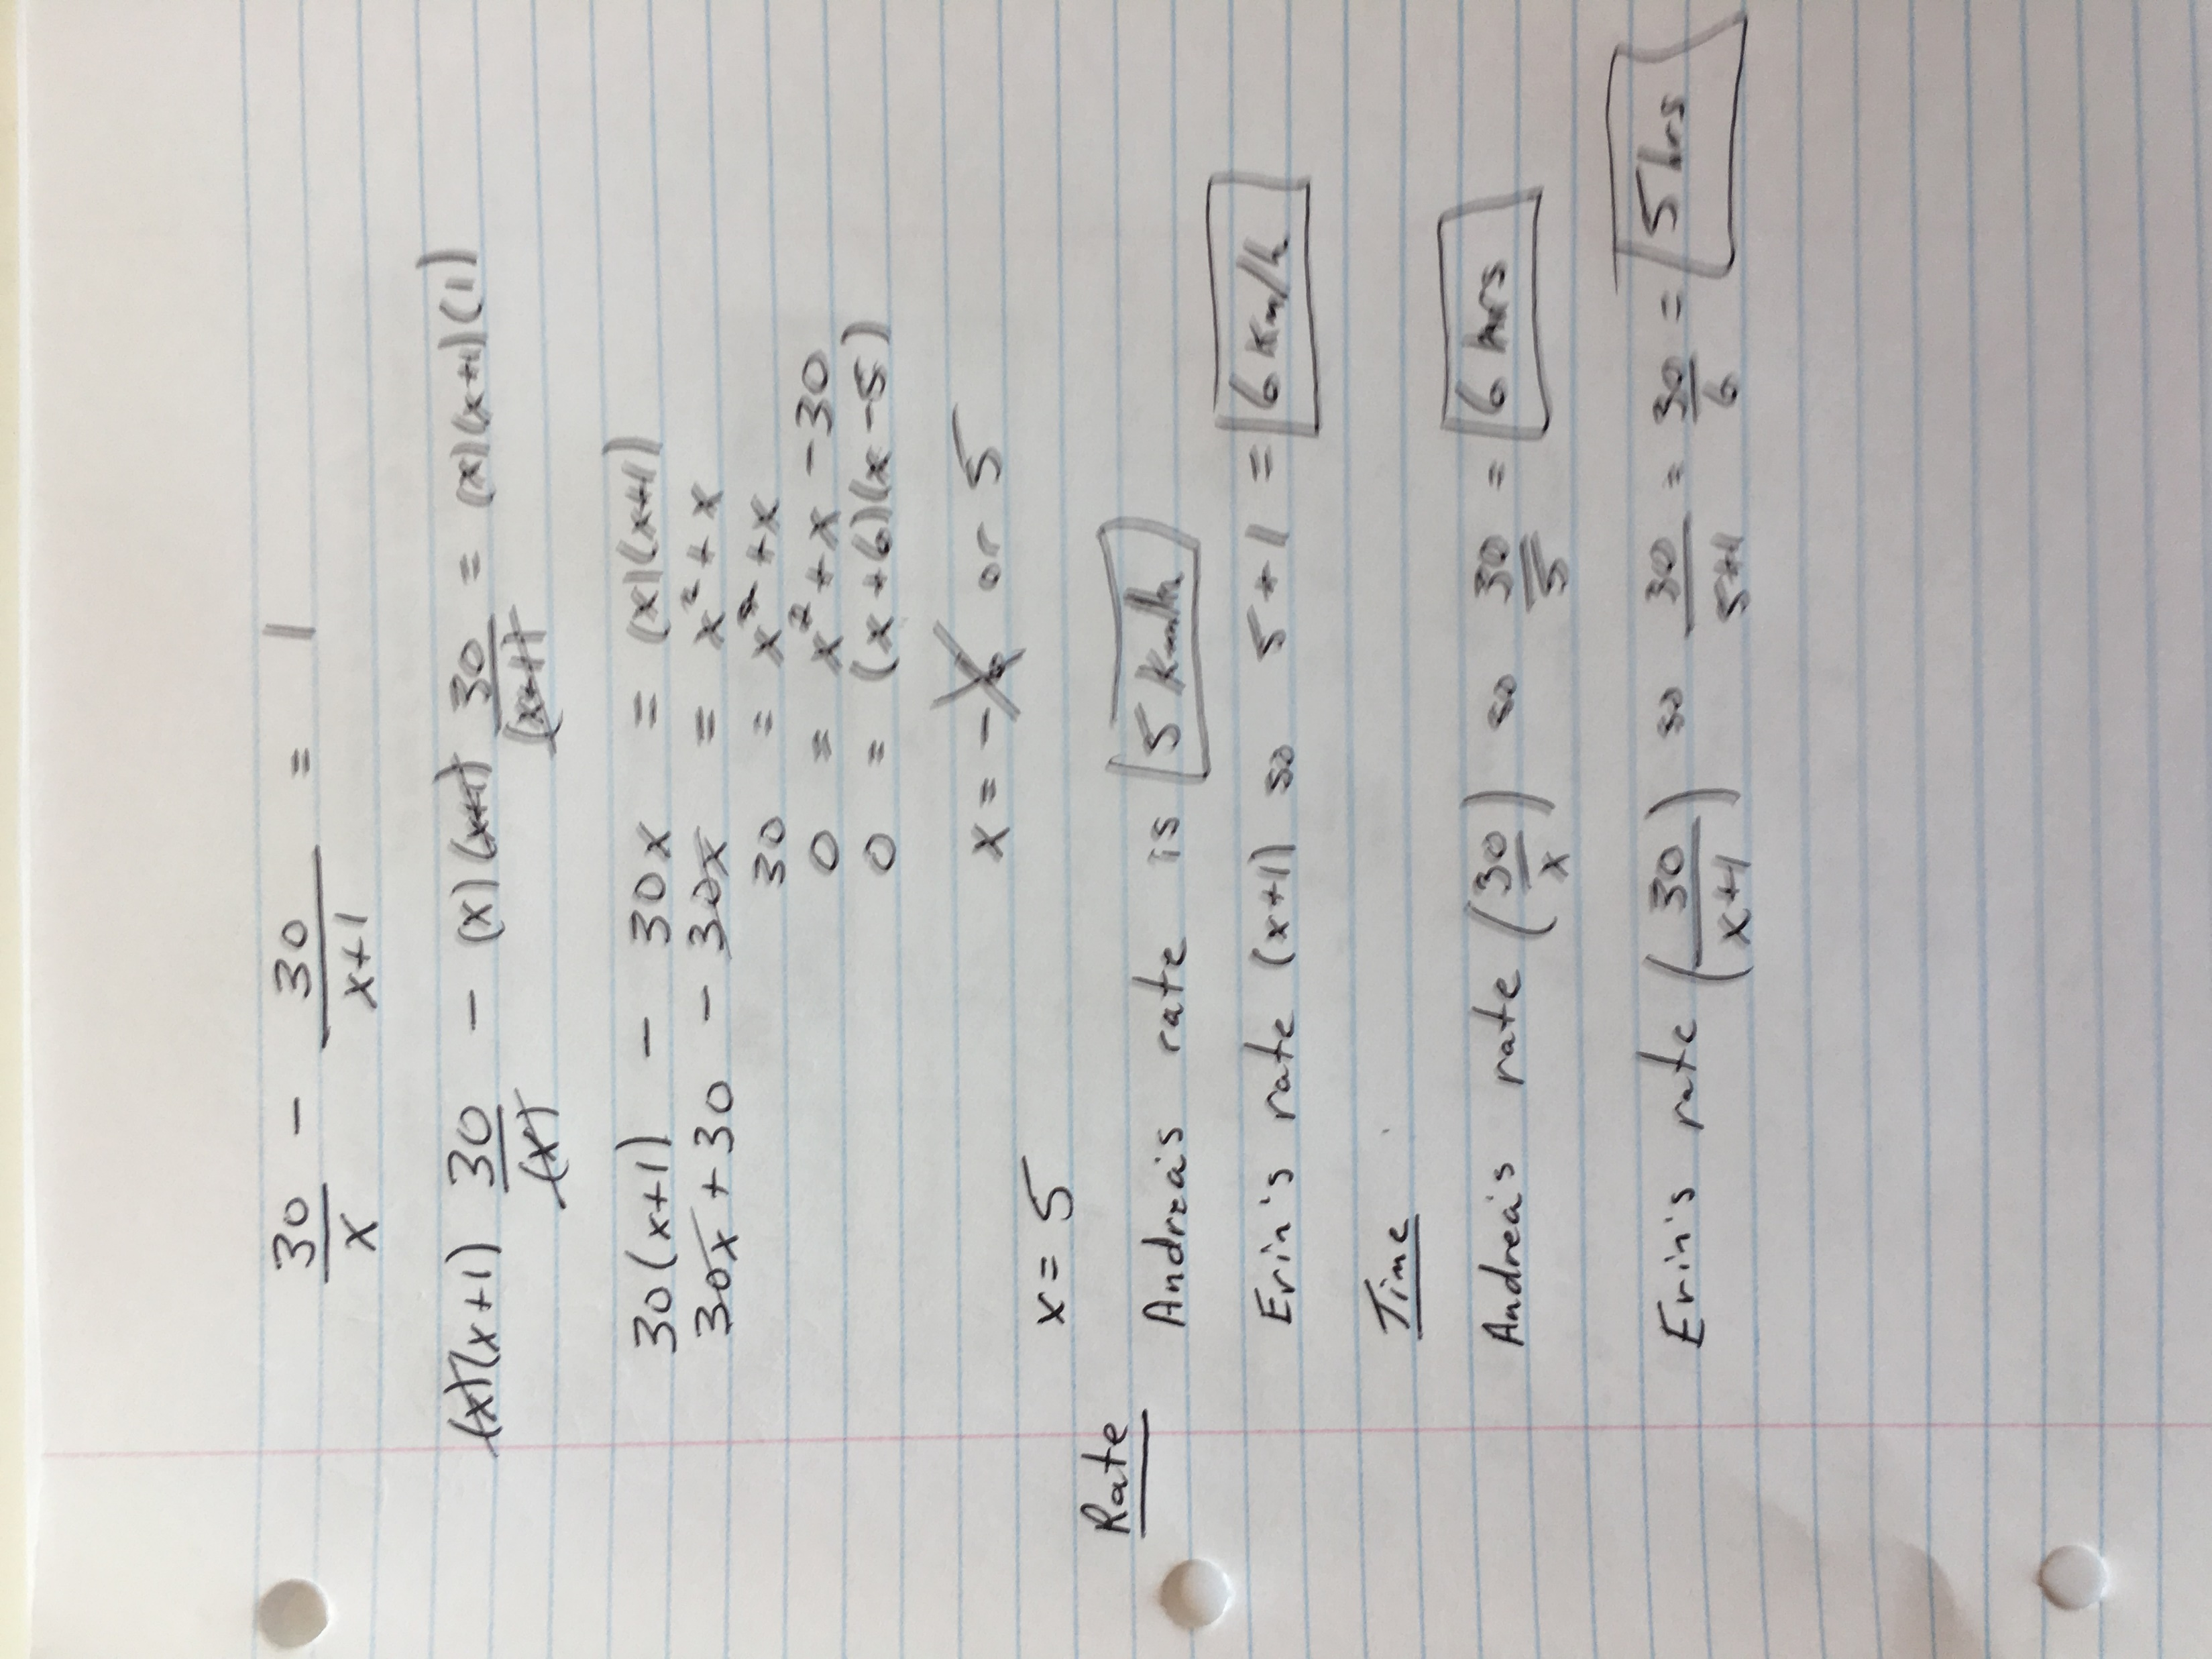 30/x - 30/x+1 = 1
(x)(x+1) 30/(x) - (x)(x+1) 30/(x+1) = (x)(x+1)(1)
30(x+1) - 30x = (x)(x+1)
30x+30 - 30x = x²+x
30 = x²+x
0 = x²+x-30
0 = (x+6)(x-5)
x = -6 or 5
x = 5
Rate
Andrea's rate is 5 Km/h
Erin's rate (x+1) so 5+1 = 6 Km/h
Time
Andrea's rate (30/x) so 30/5 = 6 hrs
Erin's rate (30/x+1) so 30/5+1 = 30/6 = 5 hrs